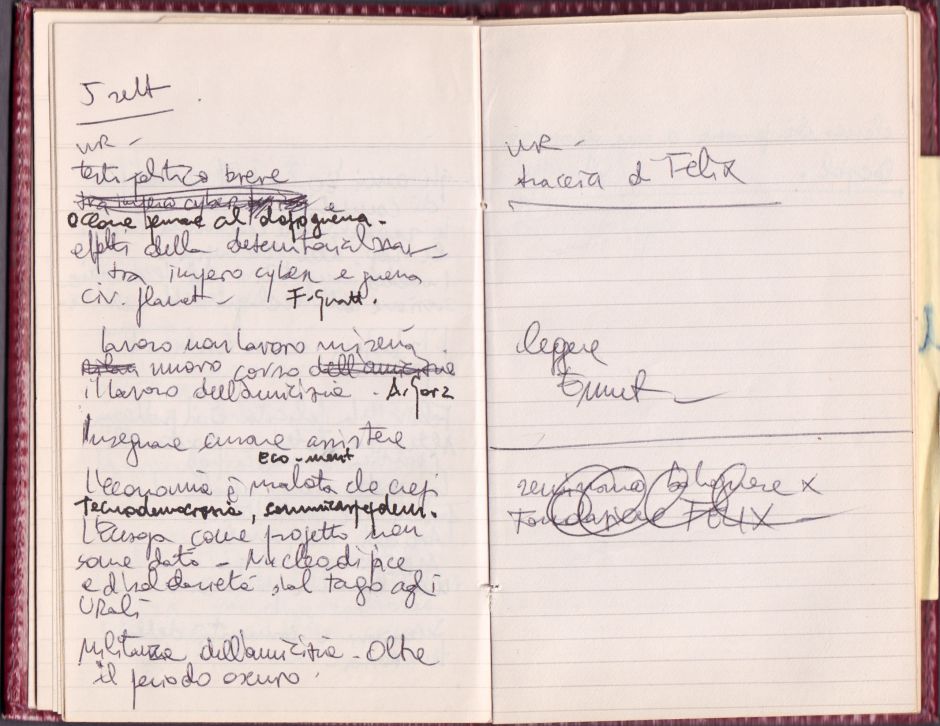 5 sett
UR -
testo politico breve
tra impero cyber
occorre pensare al dopoguerra -
effetti della deterritorializzaz -
tra impero cyber e guerra
civ. planet - F. Guatt.
lavoro non lavoro miseria
nuovo corso dell'amicizia
il lavoro dell'amicizia - A. Gorz
Insegnare curare assistere
eco-ment
L'economia è malata da crepi
Tecnodemocrazia,
L'Europa come progetto non
come dato - Nucleo di pace
e di solidarietà dal tago agli
URali
Militanza dell'amicizia - Oltre
il periodo oscuro.
UR -
traccia d Felix
leggere
seminario x
Fondazione FELIX